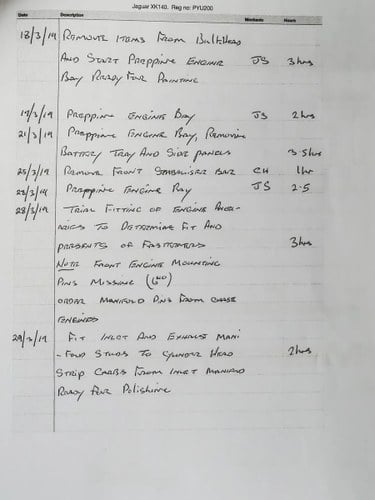 Jaguar XK140. Reg no: PYU200
Date Description Mechanic Hours
18/3/19 Remove Items From Bulkhead
And Start Prepping Engine JS 3hrs
Bay Ready For Painting
19/3/19 Prepping Engine Bay JS 2hrs
21/3/19 Prepping Engine Bay, Removing
Battery Tray And Side panels 3.5hrs
25/3/19 Remove Front Stabiliser Bar CH 1hr
Prepping Engine Bay JS 2.5
28/3/19 Trial Fitting of Engine
To Determine Fit And
presents of Fasteners 3hrs
Note Front Engine Mounting
Pins Missing
order Manifold Pins From
Engines
29/3/19 Fit Inlet And Exhaust Mani
-fold Studs To Cylinder Head 2hrs
Strip Carbs From Inlet Manifold
Ready For Polishing